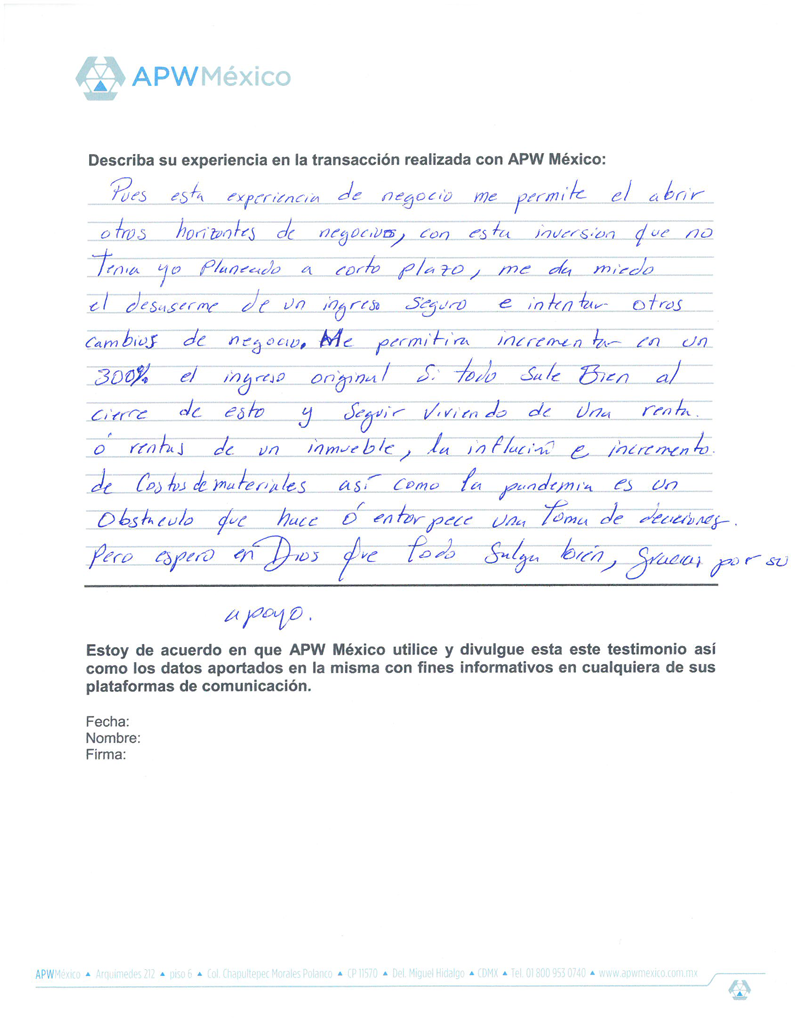 APWMéxico
Describa su experiencia en la transacción realizada con APW México:
Pues esta experiencia de negocio me permite el abrir
otros horizontes de negocios, con esta inversion que no
Tenia yo Planeado a corto plazo, me da miedo
el desaserme de un ingreso seguro e intentar otros
cambios de negocio. Me permitira incrementar en un
300% el ingreso original Si todo Sale Bien al
cierre de esto y Seguir Viviendo de Una renta.
ó rentas de un inmueble, la inflación e incremento.
de Costos de materiales así como la pandemia es un
Obstaculo que hace ó entorpece una Toma de deciciones.
Pero espero en Dios que Todo Salga bien, Gracias por su
apoyo.
Estoy de acuerdo en que APW México utilice y divulgue esta este testimonio así
como los datos aportados en la misma con fines informativos en cualquiera de sus
plataformas de comunicación.
Fecha:
Nombre:
Firma:
APWMéxico ▲ Arquímedes 212 ▲ piso 6 ▲ Col. Chapultepec Morales Polanco ▲ CP 11570 ▲ Del. Miguel Hidalgo ▲ CDMX ▲ Tel. 01 800 953 0740 ▲ www.apwmexico.com.mx